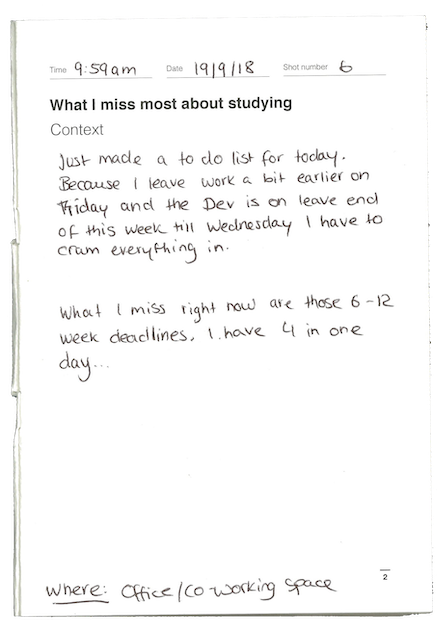 Time 9:59am Date 19/9/18 Shot number 6
What I miss most about studying
Context
Just made a to do list for today.
Because I leave work a bit earlier on
Friday and the Dev is on leave end
of this week till Wednesday I have to
cram everything in.
What I miss right now are those 6-12
week deadlines. I have 4 in one
day...
2
Where: Office/co-working space